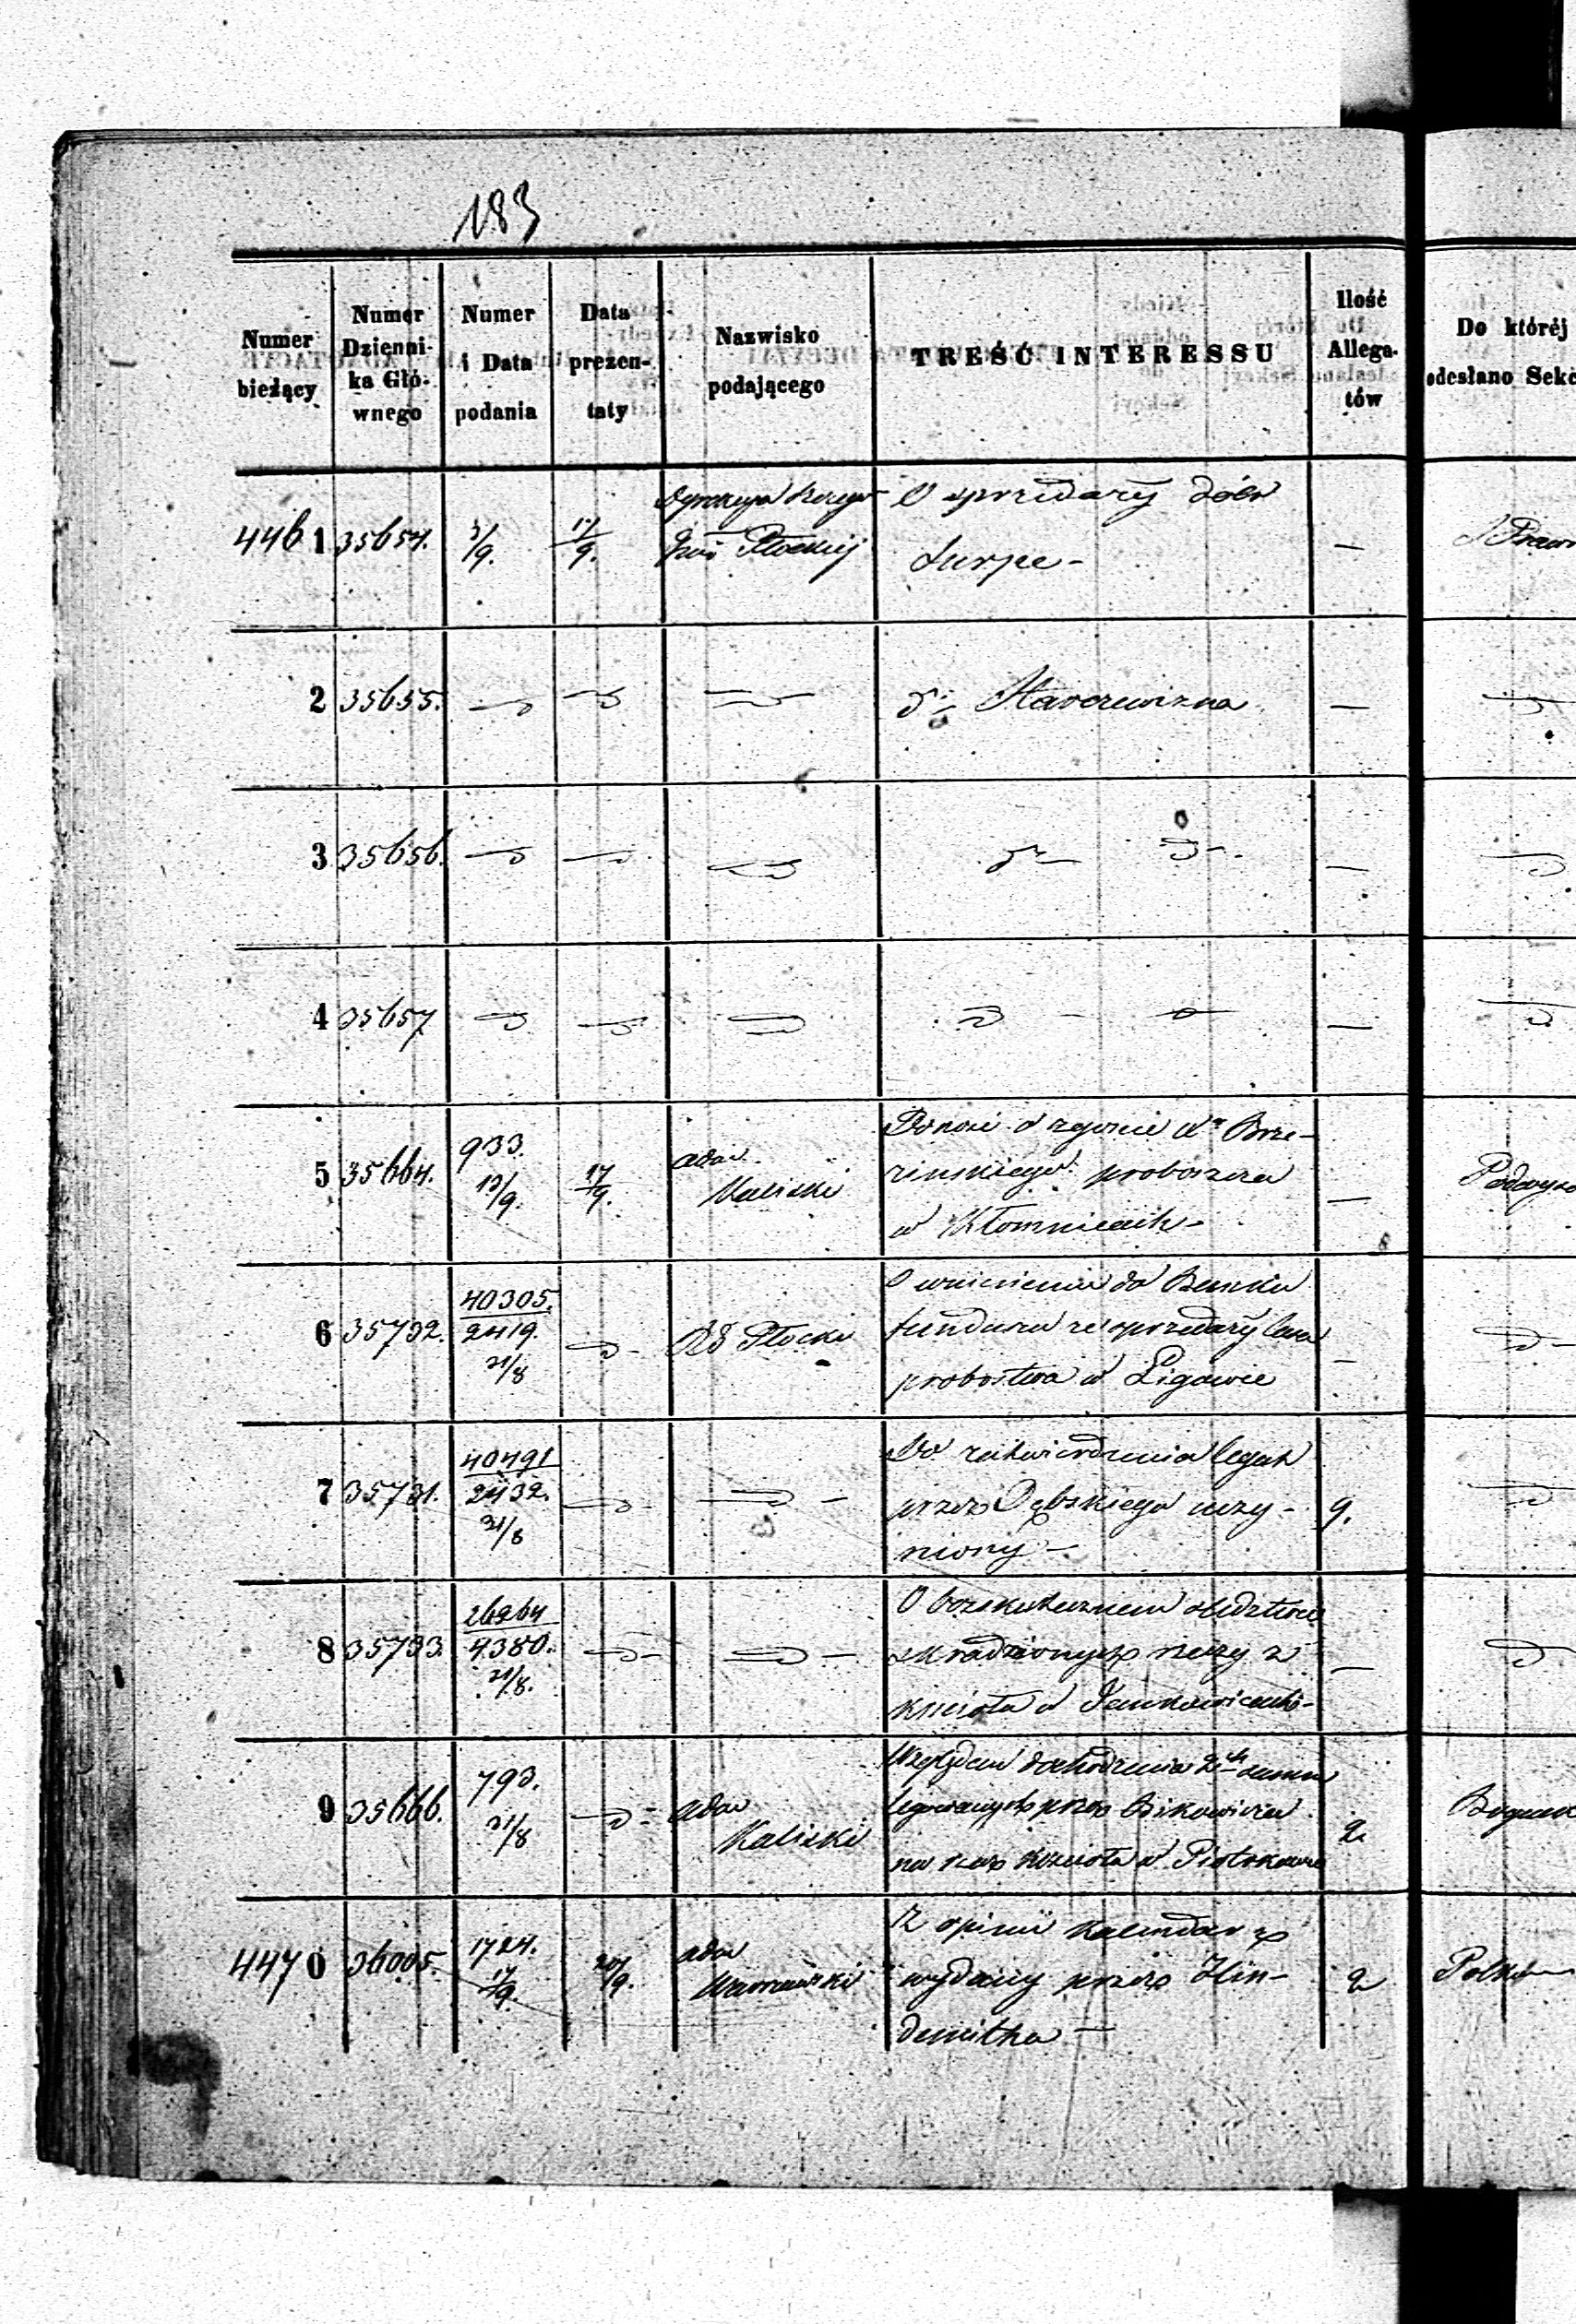 183
Numer bieżący
Numer Dzienni-ka Głó-wnego
Numer i Data podania
Data prezen-taty
Nazwisko podającego
TREŚĆ INTERESSU
Ilość Allega-tów
Do któréj odesłano Sekc
4461 35654. 3/9. 17/9. Płockiej O sprzedaży dóbr —
2 35655. —
3 35656. —
4 35657 —
5 35664. 933. 13/9. 17/9. Adm Kaliski
Donosi o zgonie Xa Brze-
zinskiego proboszcza
w Kłomnicach —
6 35732. 40305. 2419. 21/8 RG Płocki
O wniesieniu do Banku
funduszu ze sprzedaży lasu
probostwa w Ligowie —
7 35731. 40491 2432. 21/8
Do zatwierdzenia legat
przez Dębskiego uczy-
niony — 9.
8 35733. 26264 4380. 21/8.
O bezskutecznem śledztwie
skradzionych rzeczy z
kościoła w —
9 35666. 793. 21/8 Adm Kaliski
Względem dochodzenia 2ch summ
legowanych przez
na rzecz kościoła w Piotrkowie 2
4470 36005. 1724. 17/9. 20/9. Adm Warszawski
Z opinii kalendarz
wydany przez Hin-
demitha — 2